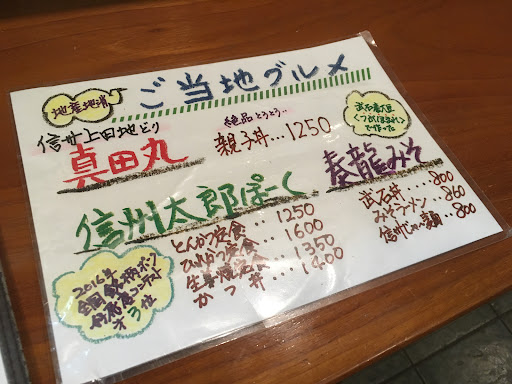 地産地消
ご当地グルメ
信州上田地どり
真田丸
絶品とろとろ..
親子丼...1250
武石産大豆
で作った
奏龍みそ
武石丼..800
みそラーメン..860
信州じゃ〜麺..800
信州太郎ぽーく
とんかつ定食..1250
ひれかつ定食..1600
生姜焼定食..1350
かつ丼...1400
2014年
全国銘柄ポーク
好感度コンテスト
オ3位